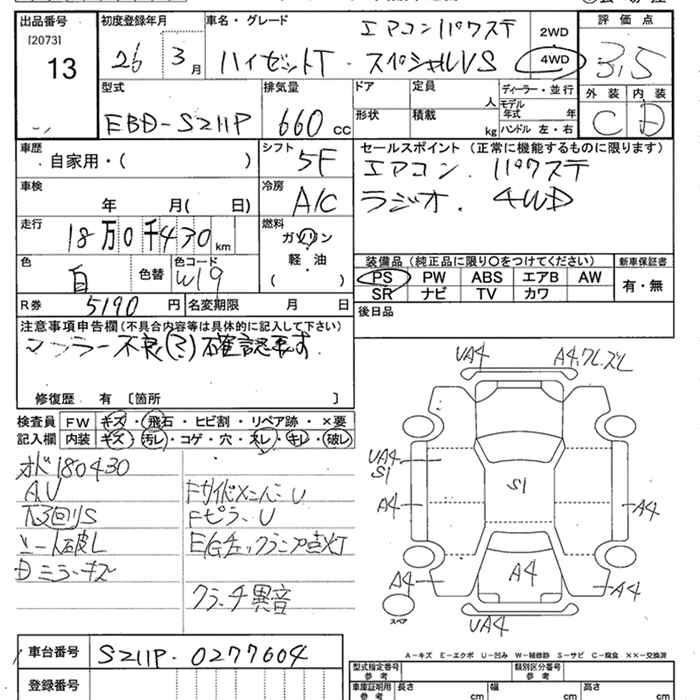 出品番号 初度登録年月 車名・グレード エアコン パワステ 2WD 評価点
[2073] 26 3月 ハイゼットT・スペシャルVS 4WD 3,5
13
型式 排気量 ドア 定員 人 ディーラー・並行 外装 内装
EBD-S211P 660 cc 形状 積載 kg モデル年式 年 C D
ハンドル 左・右
車歴 シフト セールスポイント(正常に機能するものに限ります)
自家用・( ) 5F エアコン. パワステ
車検 冷房 ラジオ. 4WD
年 月( 日) A/C
走行 燃料
18万0千430km ガソリン
軽・油
( )
色 色コード 装備品(純正品に限り〇をつけてください) 新車保証書
白 色替 W19 PS PW ABS エアB AW 有・無
SR ナビ TV カワ
R券 5190 円 名変期限 月 日 後日品
注意事項申告欄(不具合内容等は具体的に記入して下さい)
マフラー不良(?)確認要す
修復歴 有 [箇所 ]
検査員 FW キズ・飛石・ヒビ割・リペア跡・×要
記入欄 内装 キズ・汚レ・コゲ・穴・スレ・キレ・破レ
オド180430
AU FサイドメンバーU
下回りS FピラーU
シート破レ E/Gチェックランプ点灯
内ミラーキズ
クラッチ異音
UA4 A4,ワレ,ズレ
UA4
S1
S1
A4 A4
A4 A4 A4
UA4
スペア
A-キズ E-エクボ U-凹み W-補修跡 S-サビ C-腐食 ××-交換済
車台番号 S211P-0277604
登録番号
型式指定番号 参考 類別区分番号 参考
車庫証明用 参考 長さ cm 幅 cm 高さ cm